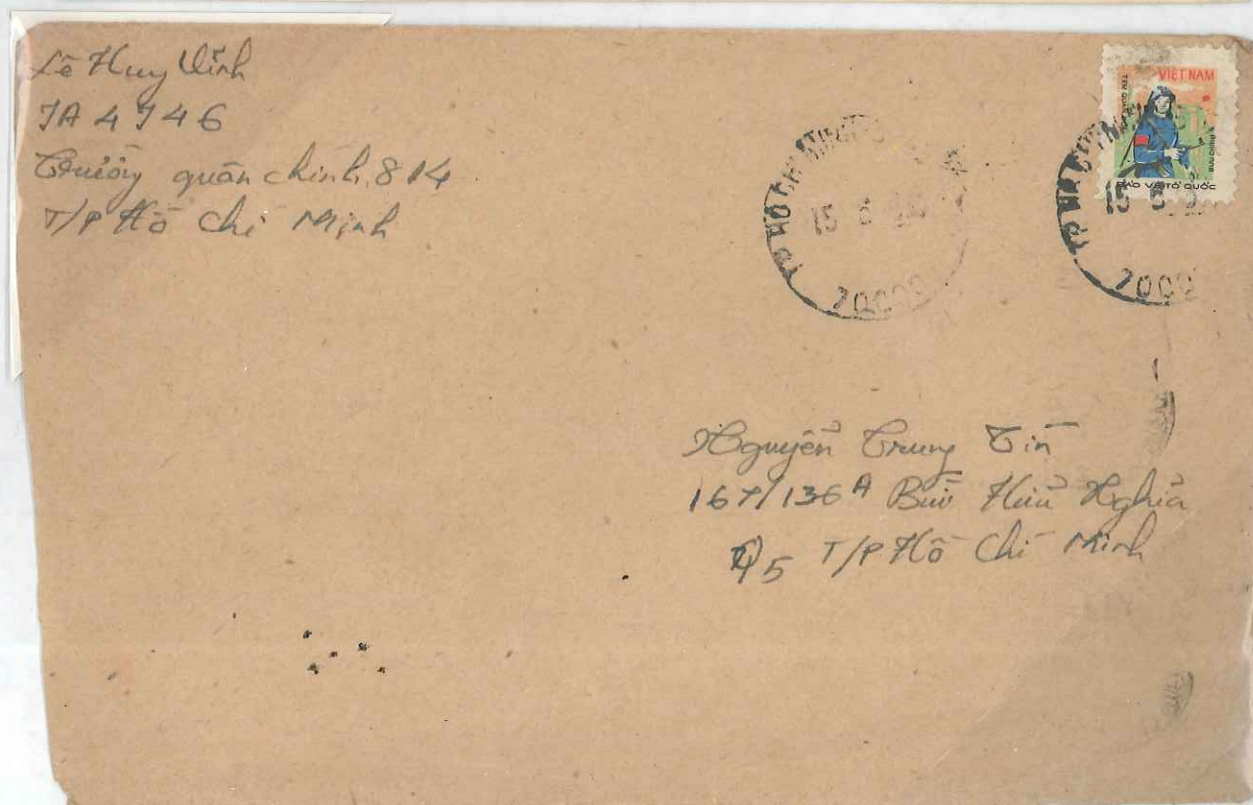 Lê Huy Vĩnh
7A 4746
Trường quân chính 814
T/P Hồ Chí Minh
VIỆT NAM
TEM QUÂN
BƯU CHÍNH
BẢO VỆ TỔ QUỐC
TP HỒ CHÍ MINH
15 6
70000
TP HỒ CHÍ MINH
15 6
7000
Nguyễn Trung Tín
167/136A Bùi Hữu Nghĩa
Q5 T/P Hồ Chí Minh